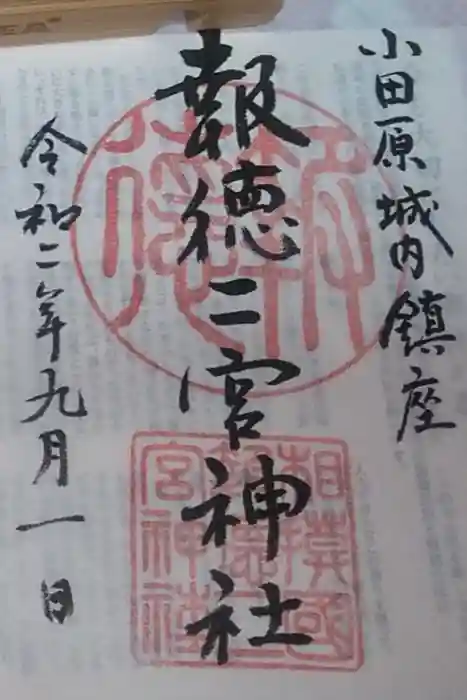 小田原城内鎮座
報徳二宮神社
令和二年九月一日
報徳
相模國
報徳二
宮神社